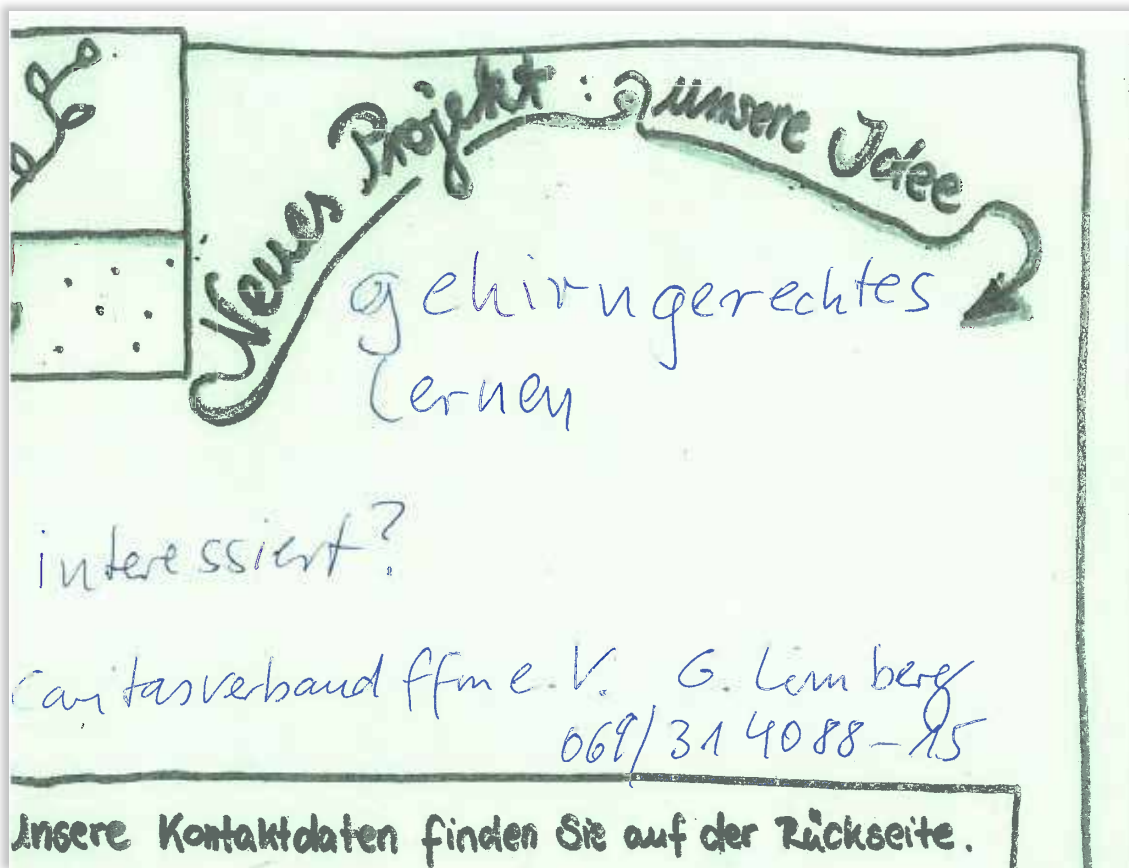 Neues Projekt : unsere Idee
gehirngerechtes
lernen
interessiert?
Caritasverband ffm e.V. G. Lemberg
069/314088-15
Unsere Kontaktdaten finden Sie auf der Rückseite.